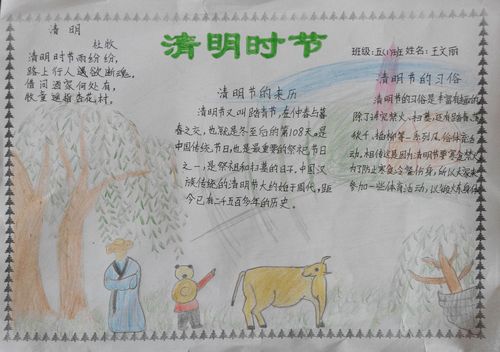 清明时节
清明
杜牧
清明时节雨纷纷,
路上行人欲断魂。
借问酒家何处有,
牧童遥指杏花村。
班级:五(1)班 姓名:王文丽
清明节的来历
清明节又叫踏青节,在仲春与暮
春之交,也就是冬至后的第108天。是
中国传统节日,也是最重要的祭祀节日
之一,是祭祖和扫墓的日子。中国汉
族传统的清明节大约始于周代,距
今已有二千五百多年的历史。
清明节的习俗
清明节的习俗是丰富有趣的
除了讲究禁火、扫墓,还有踏青、荡
秋千、插柳等一系列风俗体育活
动。相传这是因为清明节要寒食禁火
为了防止寒食冷餐伤身,所以大家来
参加一些体育活动,以锻炼身体